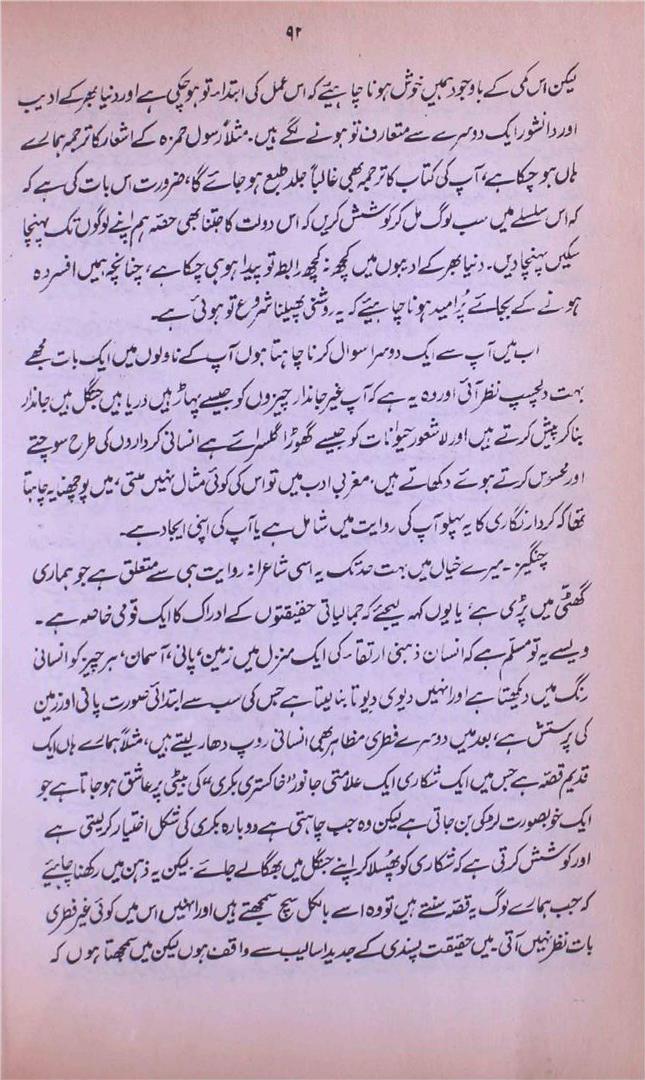 ۹۲
لیکن اس کمی کے باوجود ہمیں خوش ہونا چاہیئے کہ اس عمل کی ابتداء تو ہو چکی ہے اور دنیا بھر کے ادیب
اور دانشور ایک دوسرے سے متعارف تو ہونے لگے ہیں۔ مثلاً رسول حمزہ کے اشعار کا ترجمہ ہمارے
ہاں ہو چکا ہے، آپ کی کتاب کا ترجمہ بھی غالباً جلد طبع ہو جائے گا، ضرورت اس بات کی ہے کہ
کہ اس سلسلے میں سب لوگ مل کر کوشش کریں کہ اس دولت کا جتنا بھی حصّہ ہم اپنے لوگوں تک پہنچا
سکیں پہنچا دیں۔ دنیا بھر کے ادیبوں میں کچھ نہ کچھ رابطہ تو پیدا ہو ہی چکا ہے، چنانچہ ہمیں افسردہ
ہونے کے بجائے پُر امید ہونا چاہیئے کہ یہ روشنی پھیلنا شروع تو ہوئی ہے۔
اب میں آپ سے ایک دوسرا سوال کرنا چاہتا ہوں آپ کے ناولوں میں ایک بات مجھے
بہت دلچسپ نظر آئی اور وہ یہ ہے کہ آپ غیر جاندار چیزوں کو جیسے پہاڑ ہیں دریا ہیں جنگل ہیں جاندار
بنا کر پیش کرتے ہیں اور لاشعور حیوانات کو جیسے گھوڑا گلسرائے ہے انسانی کرداروں کی طرح سوچتے
اور محسوس کرتے ہوئے دکھاتے ہیں۔ مغربی ادب میں تو اس کی کوئی مثال نہیں ملتی، میں پوچھنا یہ چاہتا
تھا کہ کردار نگاری کا یہ پہلو آپ کی روایت میں شامل ہے یا آپ کی اپنی ایجاد ہے۔
چنگیز۔ میرے خیال میں بہت حد تک یہ اسی شاعرانہ روایت ہی سے متعلق ہے جو ہماری
گھٹی میں پڑی ہے، یا یوں کہہ لیجئے کہ جمالیاتی حقیقتوں کے ادراک کا ایک قومی خاصہ ہے۔
ویسے یہ تو مسلّم ہے کہ انسان ذہنی ارتقاء کی ایک منزل میں زمین، پانی، آسمان، ہر چیز کو انسانی
رنگ میں دیکھتا ہے اور انہیں دیوی دیوتا بنا لیتا ہے جس کی سب سے ابتدائی صورت پانی اور زمین
کی پرستش ہے، بعد میں دوسرے فطری مظاہر بھی انسانی روپ دھار لیتے ہیں، مثلاً ہمارے ہاں ایک
قدیم قصّہ ہے جس میں ایک شکاری ایک علامتی جانور "خاکستری بکری" کی بیٹی پر عاشق ہو جاتا ہے جو
ایک خوبصورت لڑکی بن جاتی ہے لیکن وہ جب چاہتی ہے دوبارہ بکری کی شکل اختیار کر لیتی ہے
اور کوشش کرتی ہے کہ شکاری کو پھسلا کر اپنے جنگل میں بھگا لے جائے۔ لیکن یہ ذہن میں رکھنا چاہیئے
کہ جب ہمارے لوگ یہ قصّہ سنتے ہیں تو وہ اسے بالکل سچ سمجھتے ہیں اور انہیں اس میں کوئی غیر فطری
بات نظر نہیں آتی۔ میں حقیقت پسندی کے جدید اسالیب سے واقف ہوں لیکن میں سمجھتا ہوں کہ